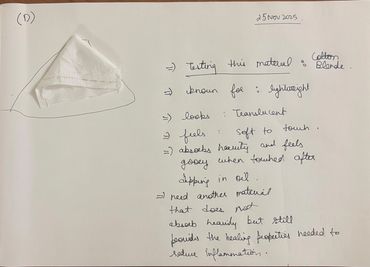 (D)
25 NOV 2025.
=) Testing this material : Cotton
Blende.
=) known for : lightweight
=) looks : Translucent
=) feels : Soft to touch.
=) absorbs heavily and feels
gooey when touched after
dipping in oil.
=) need another material
that does not
absorb heavily but still
provids the healing properties needed to
reduce inflammation.